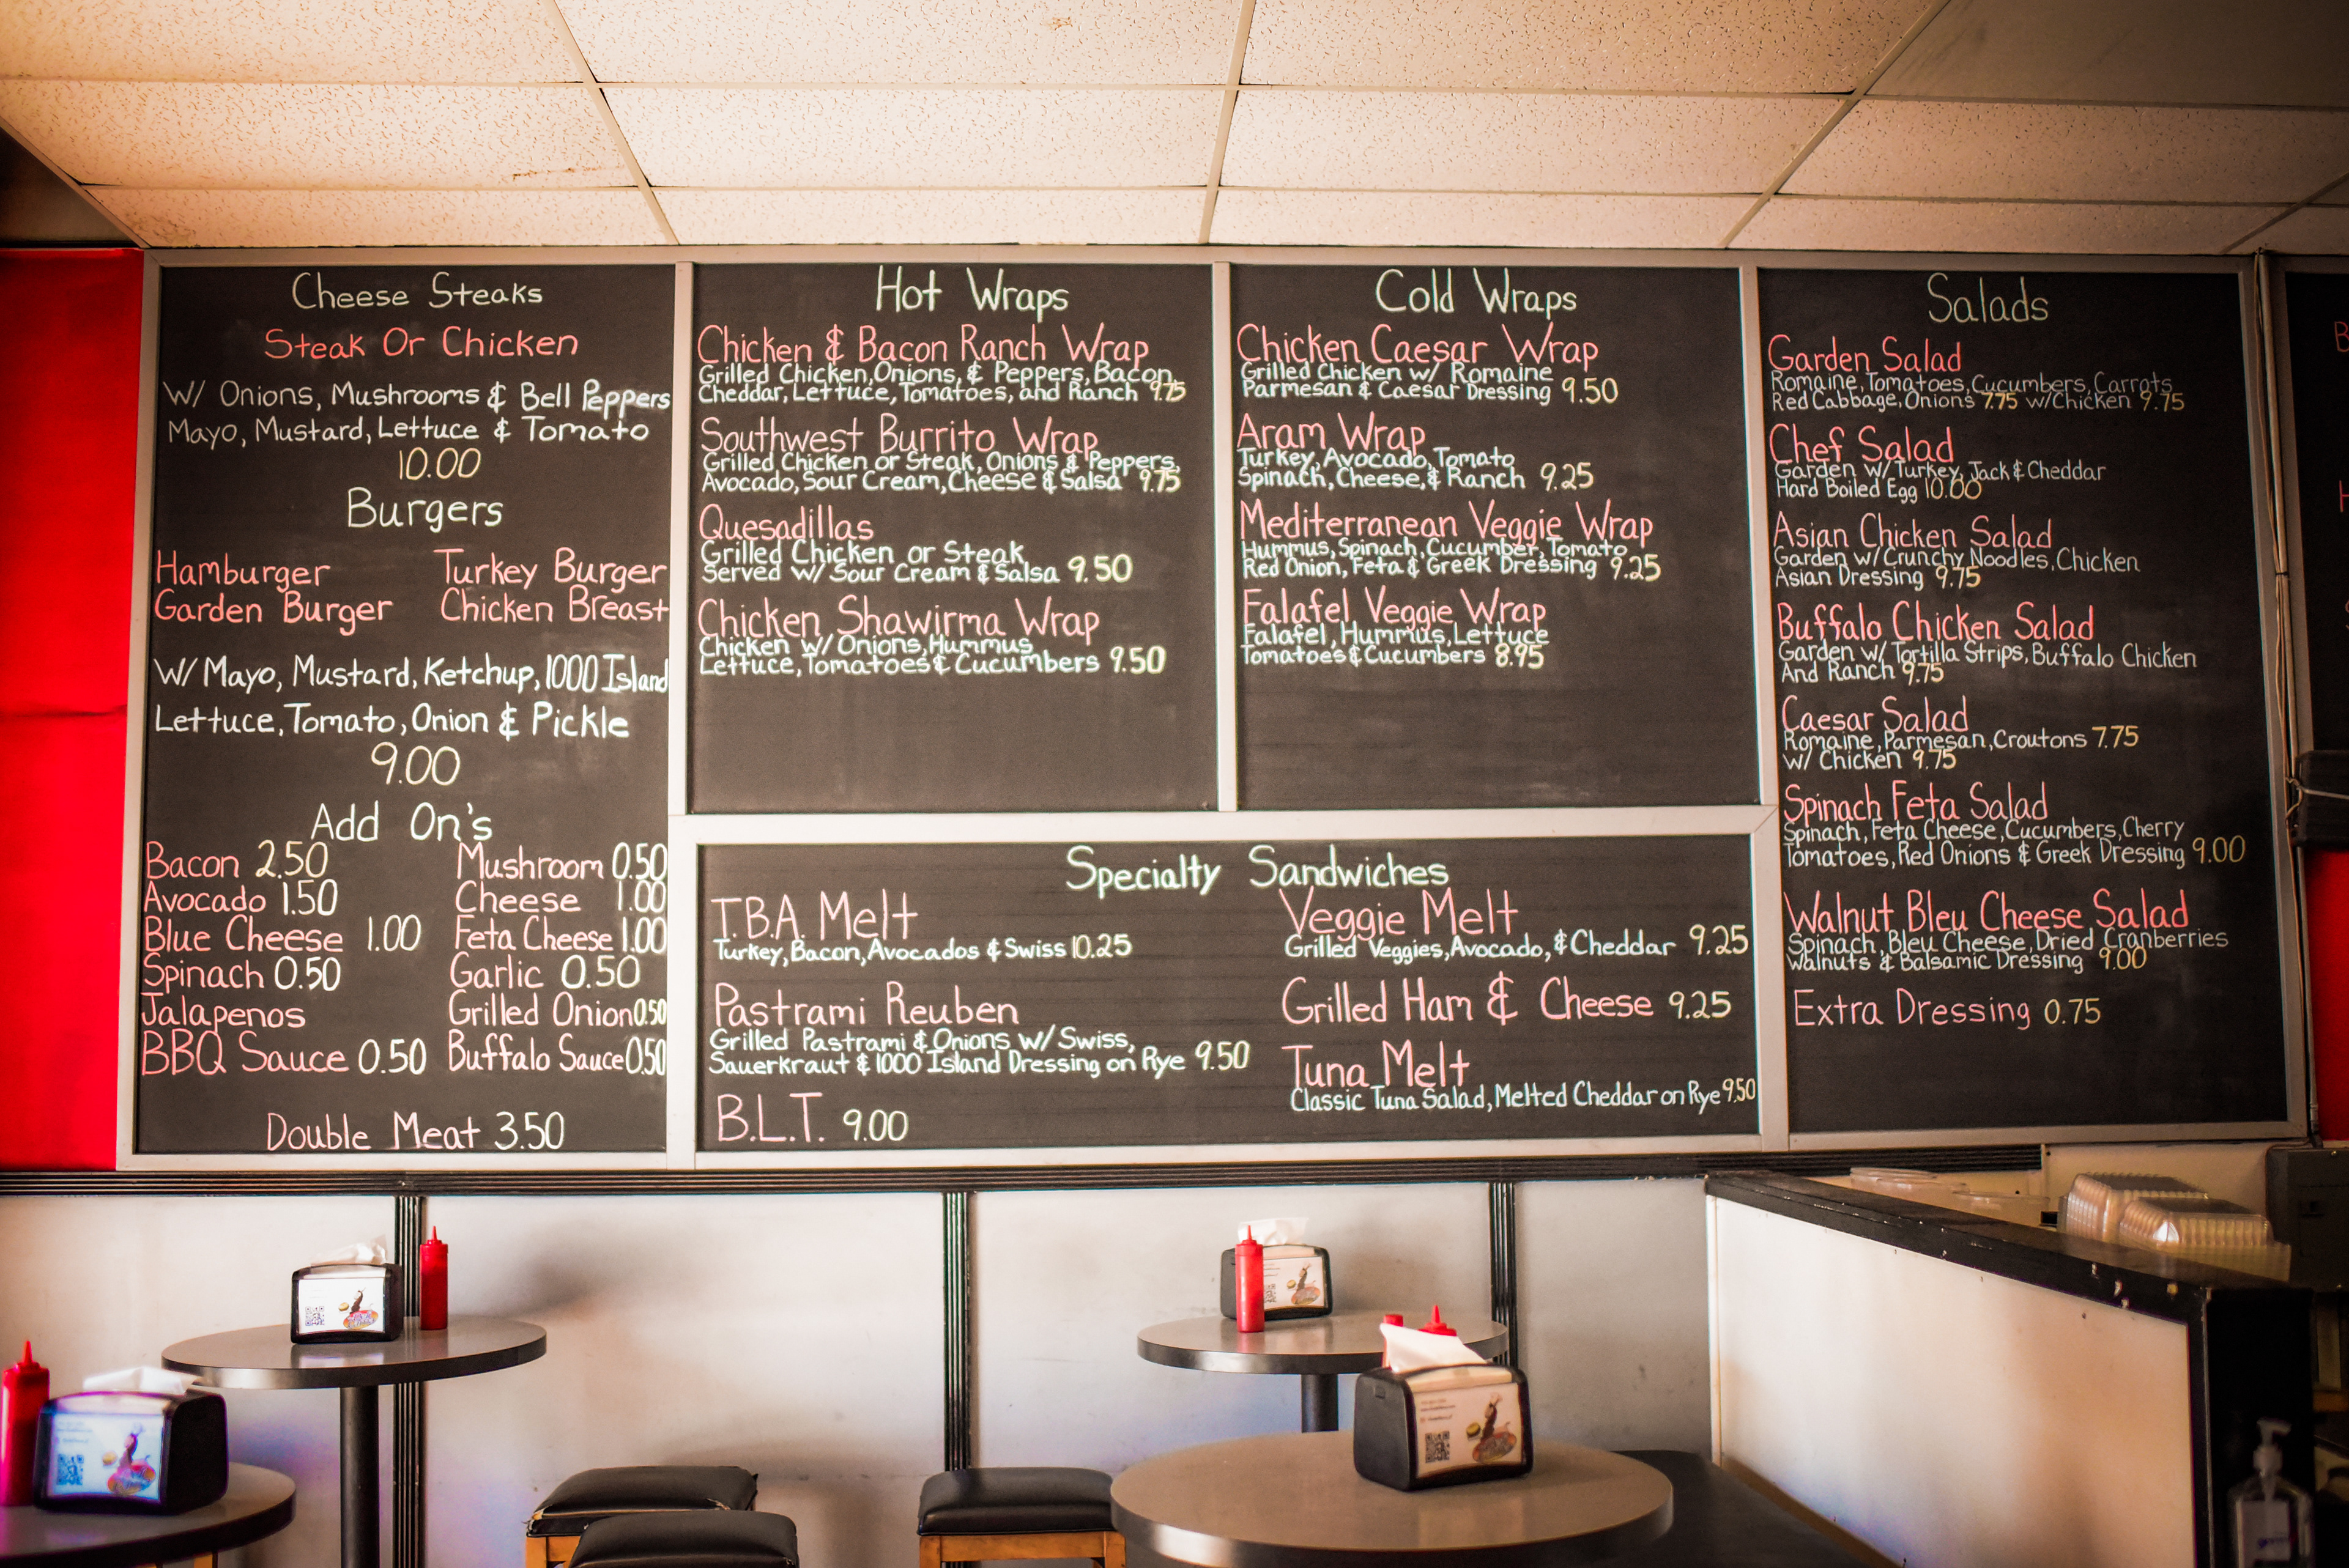 Cheese Steaks
Steak Or Chicken
W/ Onions, Mushrooms & Bell Peppers
Mayo, Mustard, Lettuce & Tomato
10.00
Burgers
Hamburger Turkey Burger
Garden Burger Chicken Breast
W/ Mayo, Mustard, Ketchup, 1000 Island
Lettuce, Tomato, Onion & Pickle
9.00
Add On's
Bacon 2.50 Mushroom 0.50
Avocado 1.50 Cheese 1.00
Blue Cheese 1.00 Feta Cheese 1.00
Spinach 0.50 Garlic 0.50
Jalapenos Grilled Onion 0.50
BBQ Sauce 0.50 Buffalo Sauce 0.50
Double Meat 3.50
Hot Wraps
Chicken & Bacon Ranch Wrap
Grilled Chicken, Onions, & Peppers, Bacon
Cheddar, Lettuce, Tomatoes, and Ranch 9.75
Southwest Burrito Wrap
Grilled Chicken or Steak, Onions & Peppers,
Avocado, Sour Cream, Cheese & Salsa 9.75
Quesadillas
Grilled Chicken or Steak
Served w/ Sour Cream & Salsa 9.50
Chicken Shawirma Wrap
Chicken w/ Onions, Hummus
Lettuce, Tomatoes & Cucumbers 9.50
Cold Wraps
Chicken Caesar Wrap
Grilled Chicken w/ Romaine
Parmesan & Caesar Dressing 9.50
Aram Wrap
Turkey, Avocado, Tomato
Spinach, Cheese, & Ranch 9.25
Mediterranean Veggie Wrap
Hummus, Spinach, Cucumber, Tomato
Red Onion, Feta & Greek Dressing 9.25
Falafel Veggie Wrap
Falafel, Hummus, Lettuce
Tomatoes & Cucumbers 8.95
Specialty Sandwiches
T.B.A. Melt
Turkey, Bacon, Avocados & Swiss 10.25
Pastrami Reuben
Grilled Pastrami & Onions w/ Swiss,
Sauerkraut & 1000 Island Dressing on Rye 9.50
B.L.T. 9.00
Veggie Melt
Grilled Veggies, Avocado, & Cheddar 9.25
Grilled Ham & Cheese 9.25
Tuna Melt
Classic Tuna Salad, Melted Cheddar on Rye 9.50
Salads
Garden Salad
Romaine, Tomatoes, Cucumbers, Carrots
Red Cabbage, Onions 7.75 w/Chicken 9.75
Chef Salad
Garden w/ Turkey, Jack & Cheddar
Hard Boiled Egg 10.00
Asian Chicken Salad
Garden w/ Crunchy Noodles, Chicken
Asian Dressing 9.75
Buffalo Chicken Salad
Garden w/ Tortilla Strips, Buffalo Chicken
And Ranch 9.75
Caesar Salad
Romaine, Parmesan, Croutons 7.75
w/ Chicken 9.75
Spinach Feta Salad
Spinach, Feta Cheese, Cucumbers, Cherry
Tomatoes, Red Onions & Greek Dressing 9.00
Walnut Bleu Cheese Salad
Spinach, Bleu Cheese, Dried Cranberries
Walnuts & Balsamic Dressing 9.00
Extra Dressing 0.75